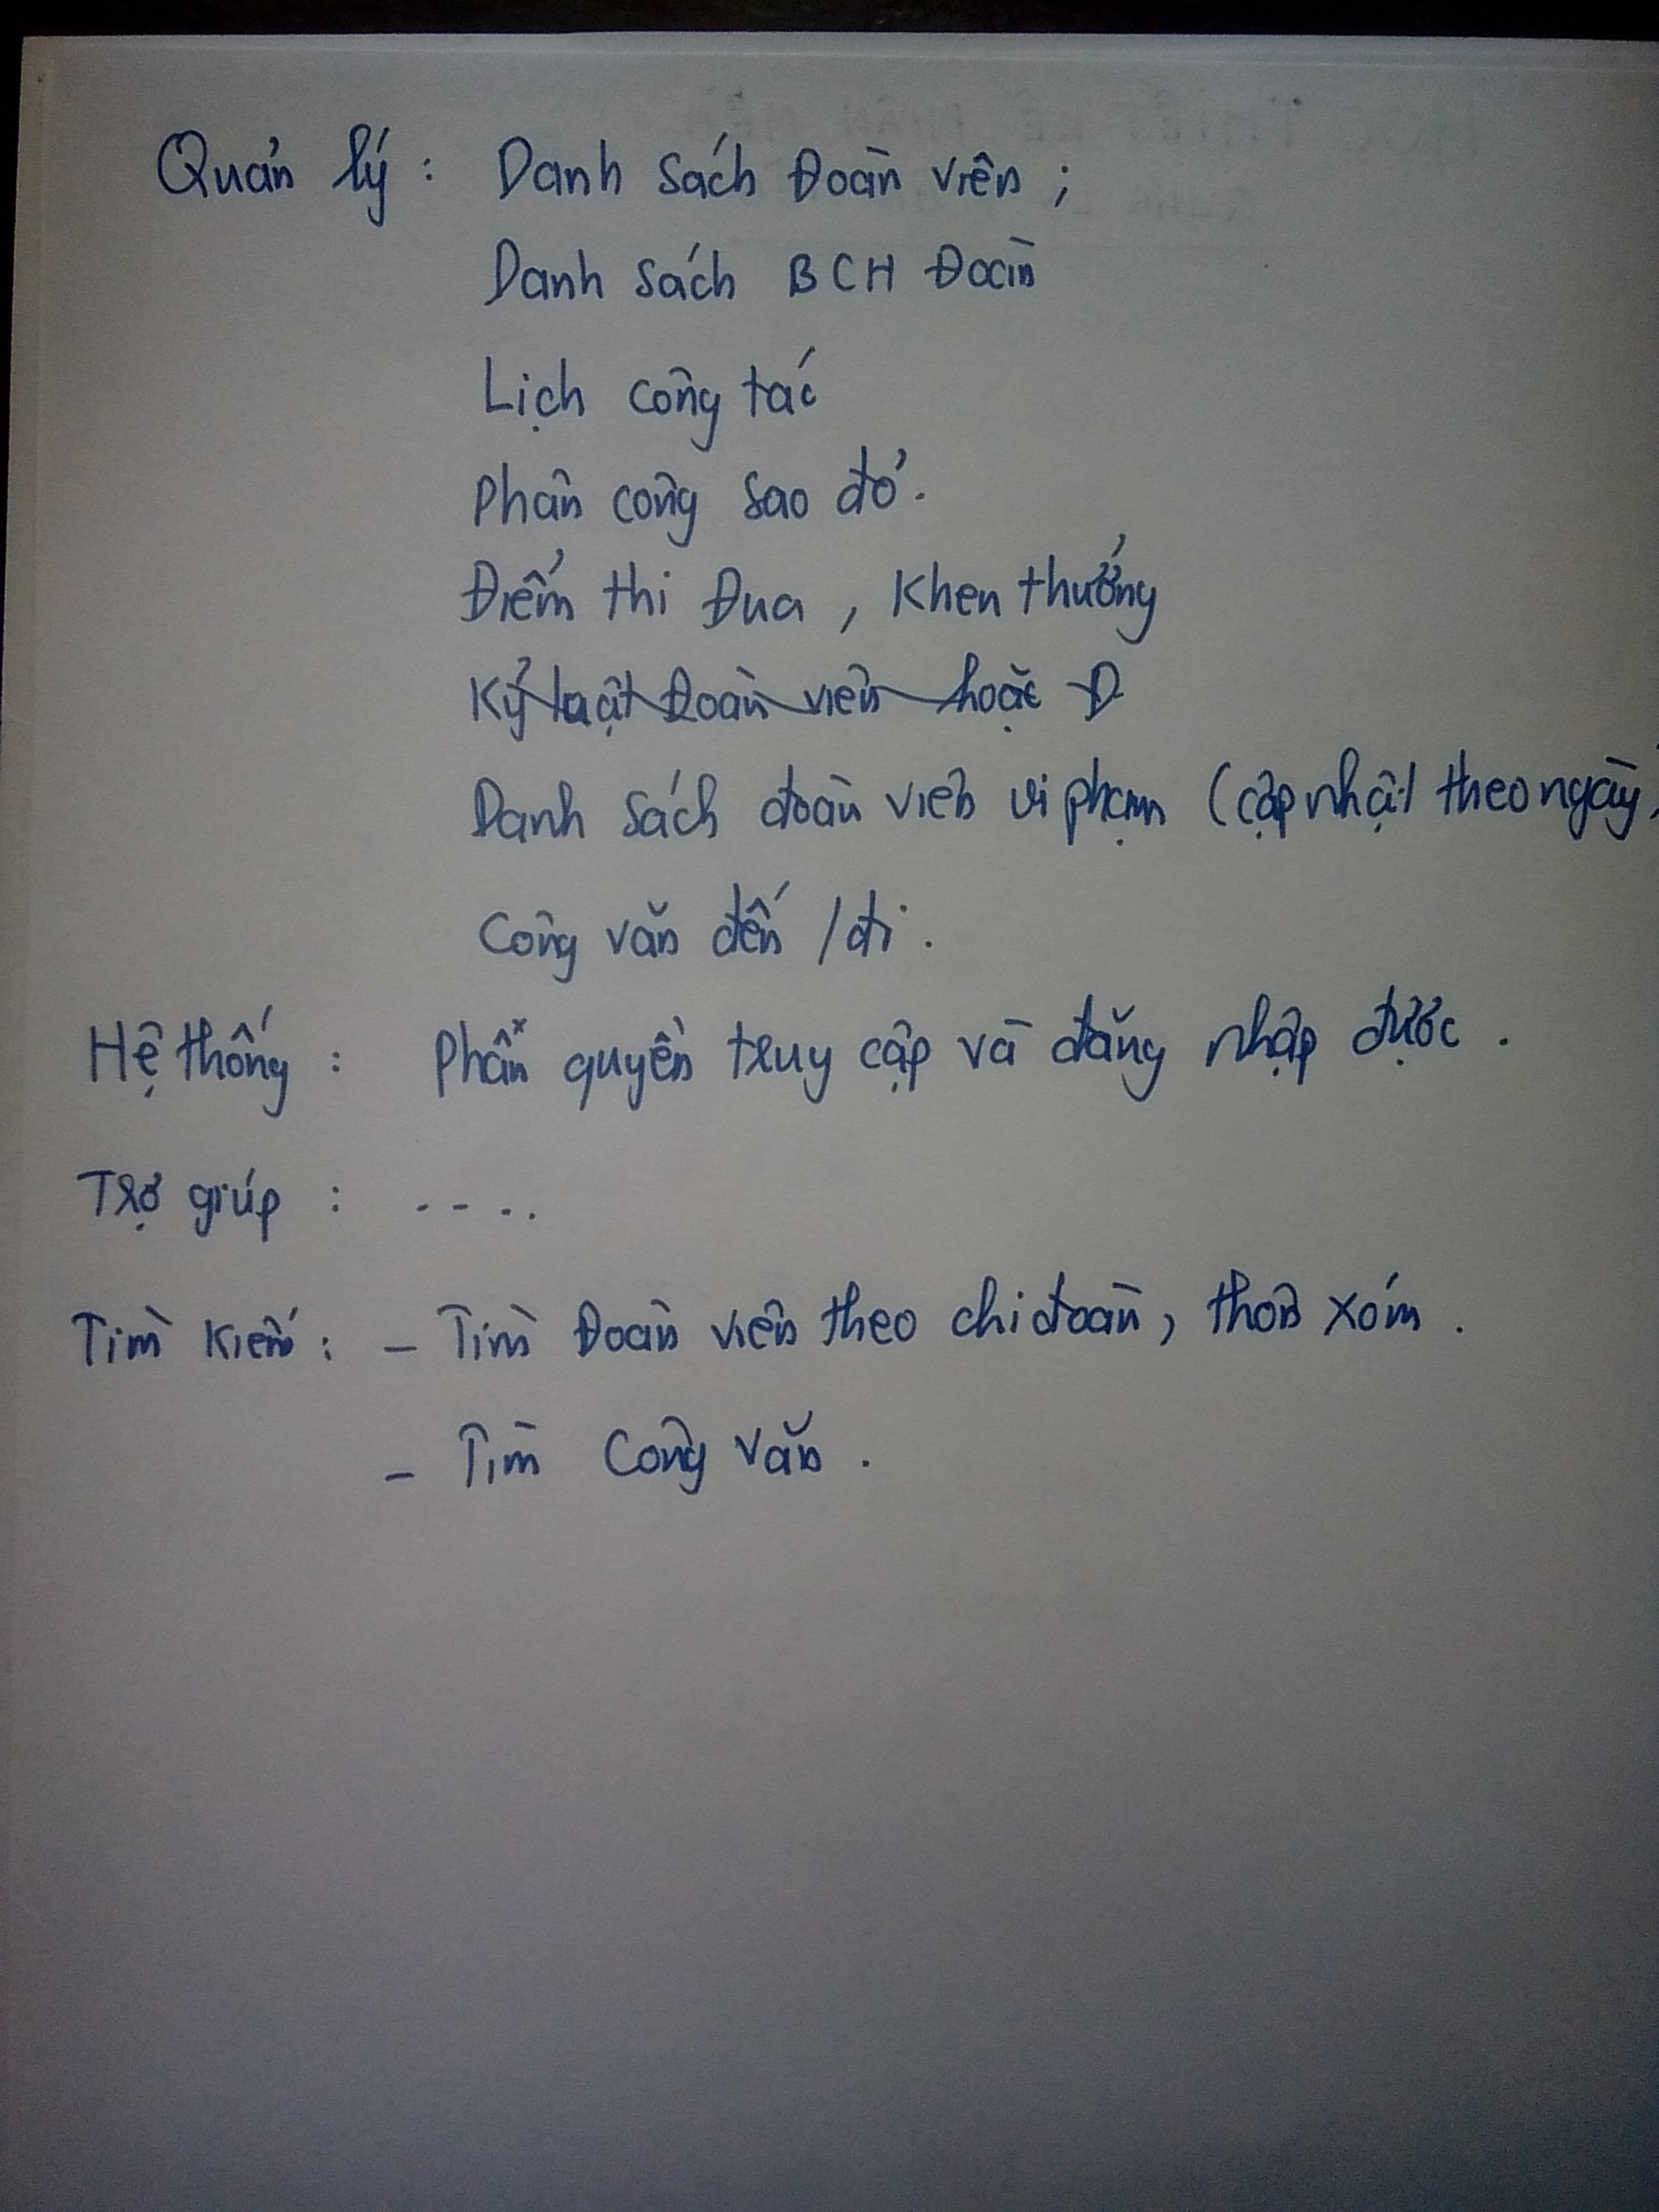 Quản lý : Danh sách Đoàn viên ;
Danh sách BCH Đoàn
Lịch công tác
Phân công sao đỏ.
Điểm thi Đua , Khen thưởng
Kỷ luật Đoàn viên hoặc Đ
Danh sách đoàn viên vi phạm (cập nhật theo ngày)
Công văn đến / đi .
Hệ thống : Phân quyền truy cập và đăng nhập được .
Trợ giúp : - - . .
Tìm Kiếm : - Tìm Đoàn viên theo chi đoàn, thôn xóm .
- Tìm Công văn .